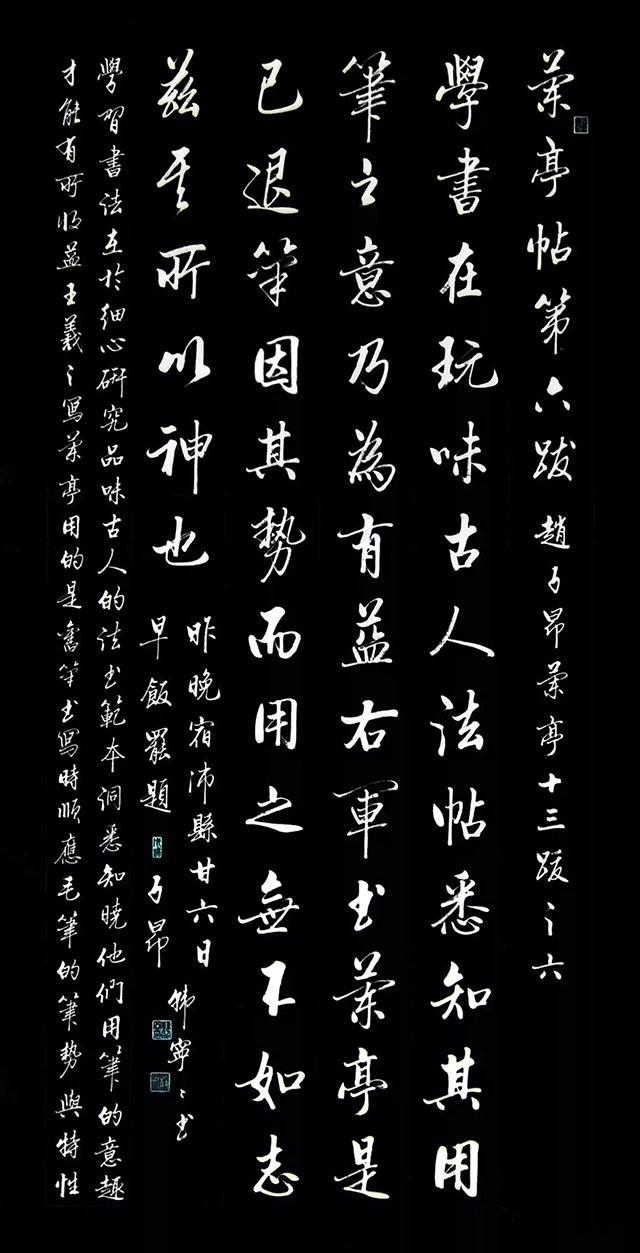 蘭亭帖第六跋 趙子昂蘭亭十三跋之六
學書在玩味古人法帖悉知其用
筆之意乃為有益右軍書蘭亭是
已退筆因其勢而用之無不如志
茲其所以神也
昨晚宿沛縣廿六日
早飯罷題 子昂
韓寧寧書
學習書法在於細心研究品味古人的法書範本洞悉知曉他們用筆的意趣
才能有所收益王羲之寫蘭亭用的是舊筆書寫時順應毛筆的筆勢與特性